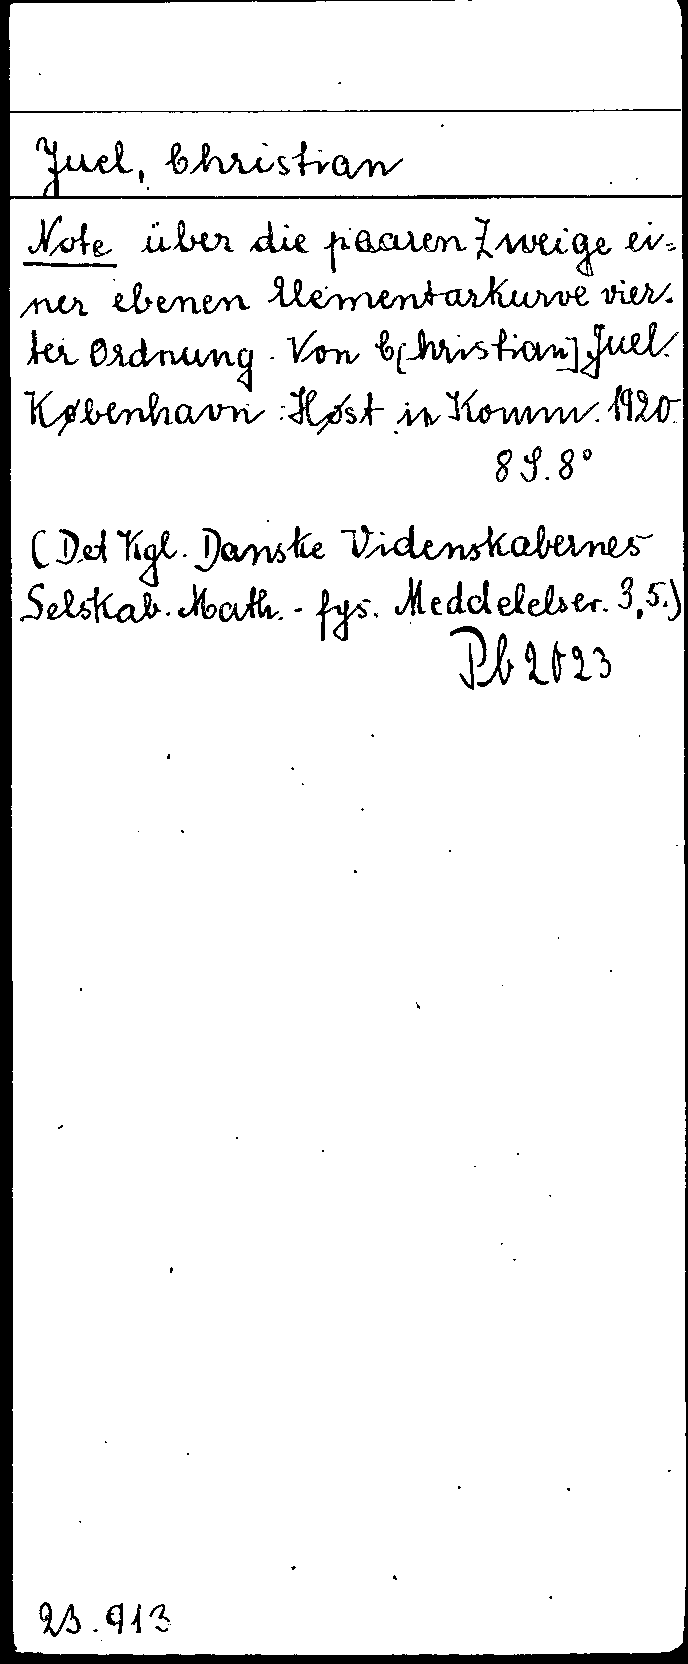 Juel, Christian
Note über die paaren Zweige ei=
ner ebenen Elementarkurve vier-
ter Ordnung. Von C[hristian] Juel.
København: Høst in Komm. 1920.
8 S. 8°
(Det Kgl. Danske Videnskabernes
Selskab. Math.-fys. Meddelelser. 3,5.)
Pb 2023
23.913